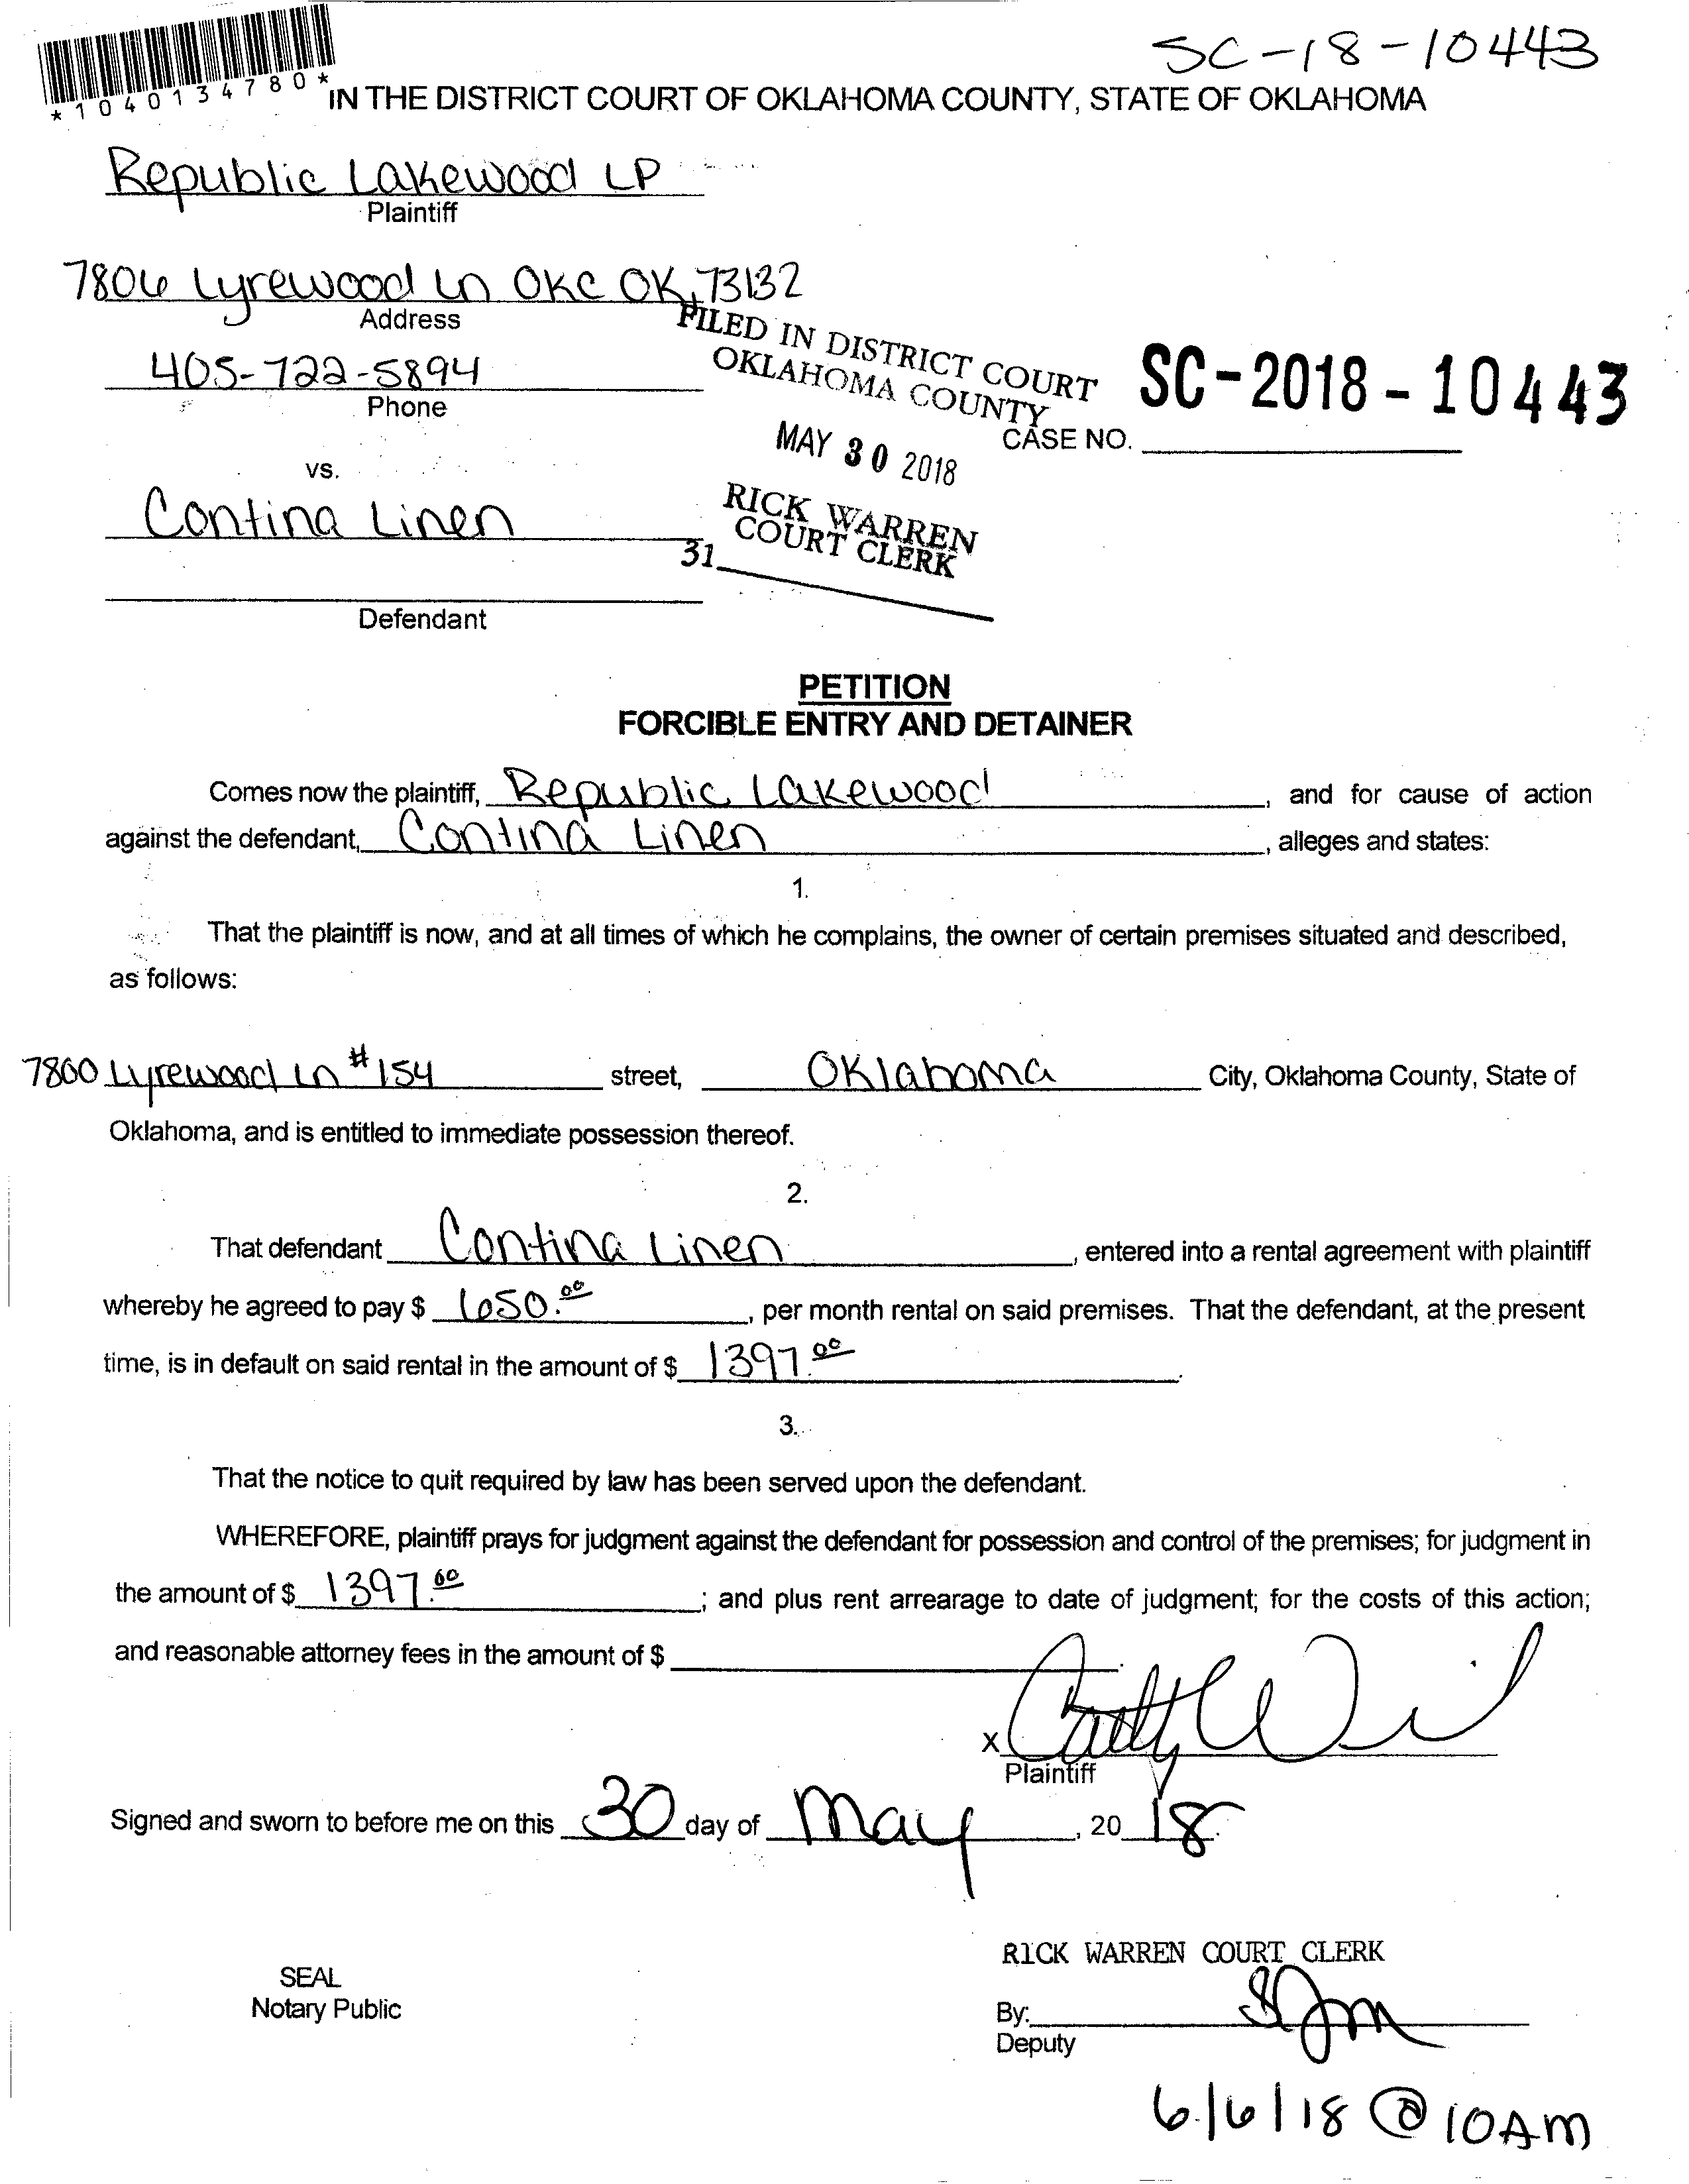 SC-18-10443
*1040134780*
IN THE DISTRICT COURT OF OKLAHOMA COUNTY, STATE OF OKLAHOMA
Republic Lakewood LP
Plaintiff
7806 Lyrewood Ln OKC OK, 73132
Address
FILED IN DISTRICT COURT
OKLAHOMA COUNTY
405-722-5894
Phone
SC-2018-10443
CASE NO.
MAY 30 2018
vs.
RICK WARREN
COURT CLERK
Contina Linen
31
Defendant
PETITION
FORCIBLE ENTRY AND DETAINER
Comes now the plaintiff, Republic Lakewood, and for cause of action
against the defendant, Contina Linen, alleges and states:
1.
That the plaintiff is now, and at all times of which he complains, the owner of certain premises situated and described,
as follows:
7800 Lyrewood Ln #154 street, Oklahoma City, Oklahoma County, State of
Oklahoma, and is entitled to immediate possession thereof.
2.
That defendant Contina Linen, entered into a rental agreement with plaintiff
whereby he agreed to pay $ 650.00, per month rental on said premises. That the defendant, at the present
time, is in default on said rental in the amount of $ 1397.00.
3.
That the notice to quit required by law has been served upon the defendant.
WHEREFORE, plaintiff prays for judgment against the defendant for possession and control of the premises; for judgment in
the amount of $ 1397.00; and plus rent arrearage to date of judgment; for the costs of this action;
and reasonable attorney fees in the amount of $
X
Plaintiff
Signed and sworn to before me on this 30 day of May, 2018
RICK WARREN COURT CLERK
SEAL
Notary Public
By:
Deputy
6/6/18 @ 10AM